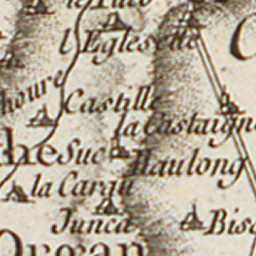 l'Eglesette
houre
Castille
la Castaign
he Suc
Haulong
la Cargu
Junca
Bisc
Orgean